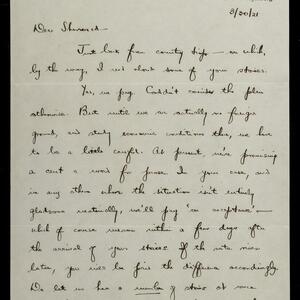 8/30/21
Dear Sherwood -
Just back from country trip - on which,
by the way, I read about some of your stories.
Yes, we pay. Couldn't consider the plan
otherwise. But until we are actually on firmer
ground, and study economic conditions then, we have
to be a little careful. At present, we're promising
a cent a word for prose. In your case, and
in any others where the situation isn't entirely
gladsome materially, we'll pay "on acceptance" -
which of course means within a few days after
the arrival of your stories. If the rate rises
later, you will be given the difference accordingly.
Do let us have a number of stories at once